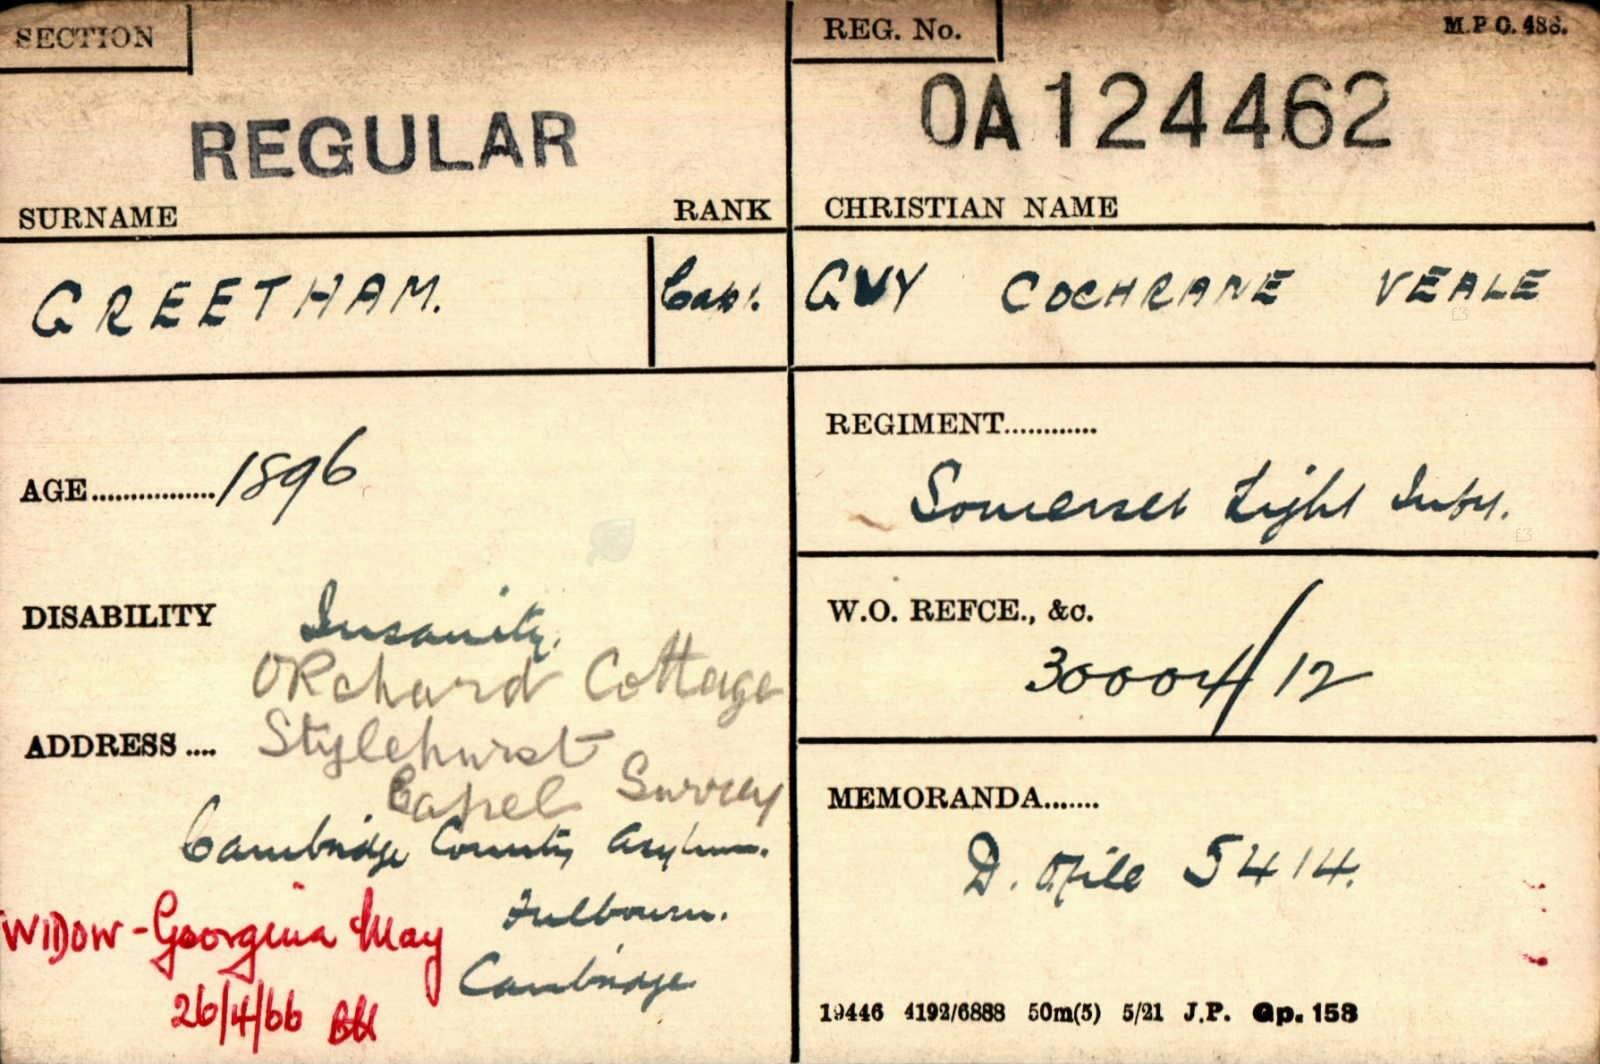 SECTION
REGULAR
REG. No.
M.P.O. 486.
OA124462
SURNAME
RANK
CHRISTIAN NAME
GREETHAM.
Capt.
GUY COCHRANE VEALE
AGE................1896
DISABILITY
Insanity.
ORchard Cottage
ADDRESS.... Stylehurst
Capel Surrey
Cambridge County Asylum.
Fulbourn.
Cambridge
WIDOW - Georgina May
26/4/66
REGIMENT............
Somerset Light Infy.
W.O. REFCE., &c.
30004/12
MEMORANDA.......
D. File 5414.
19446 4192/6888 50m(5) 5/21 J.P. Gp. 158